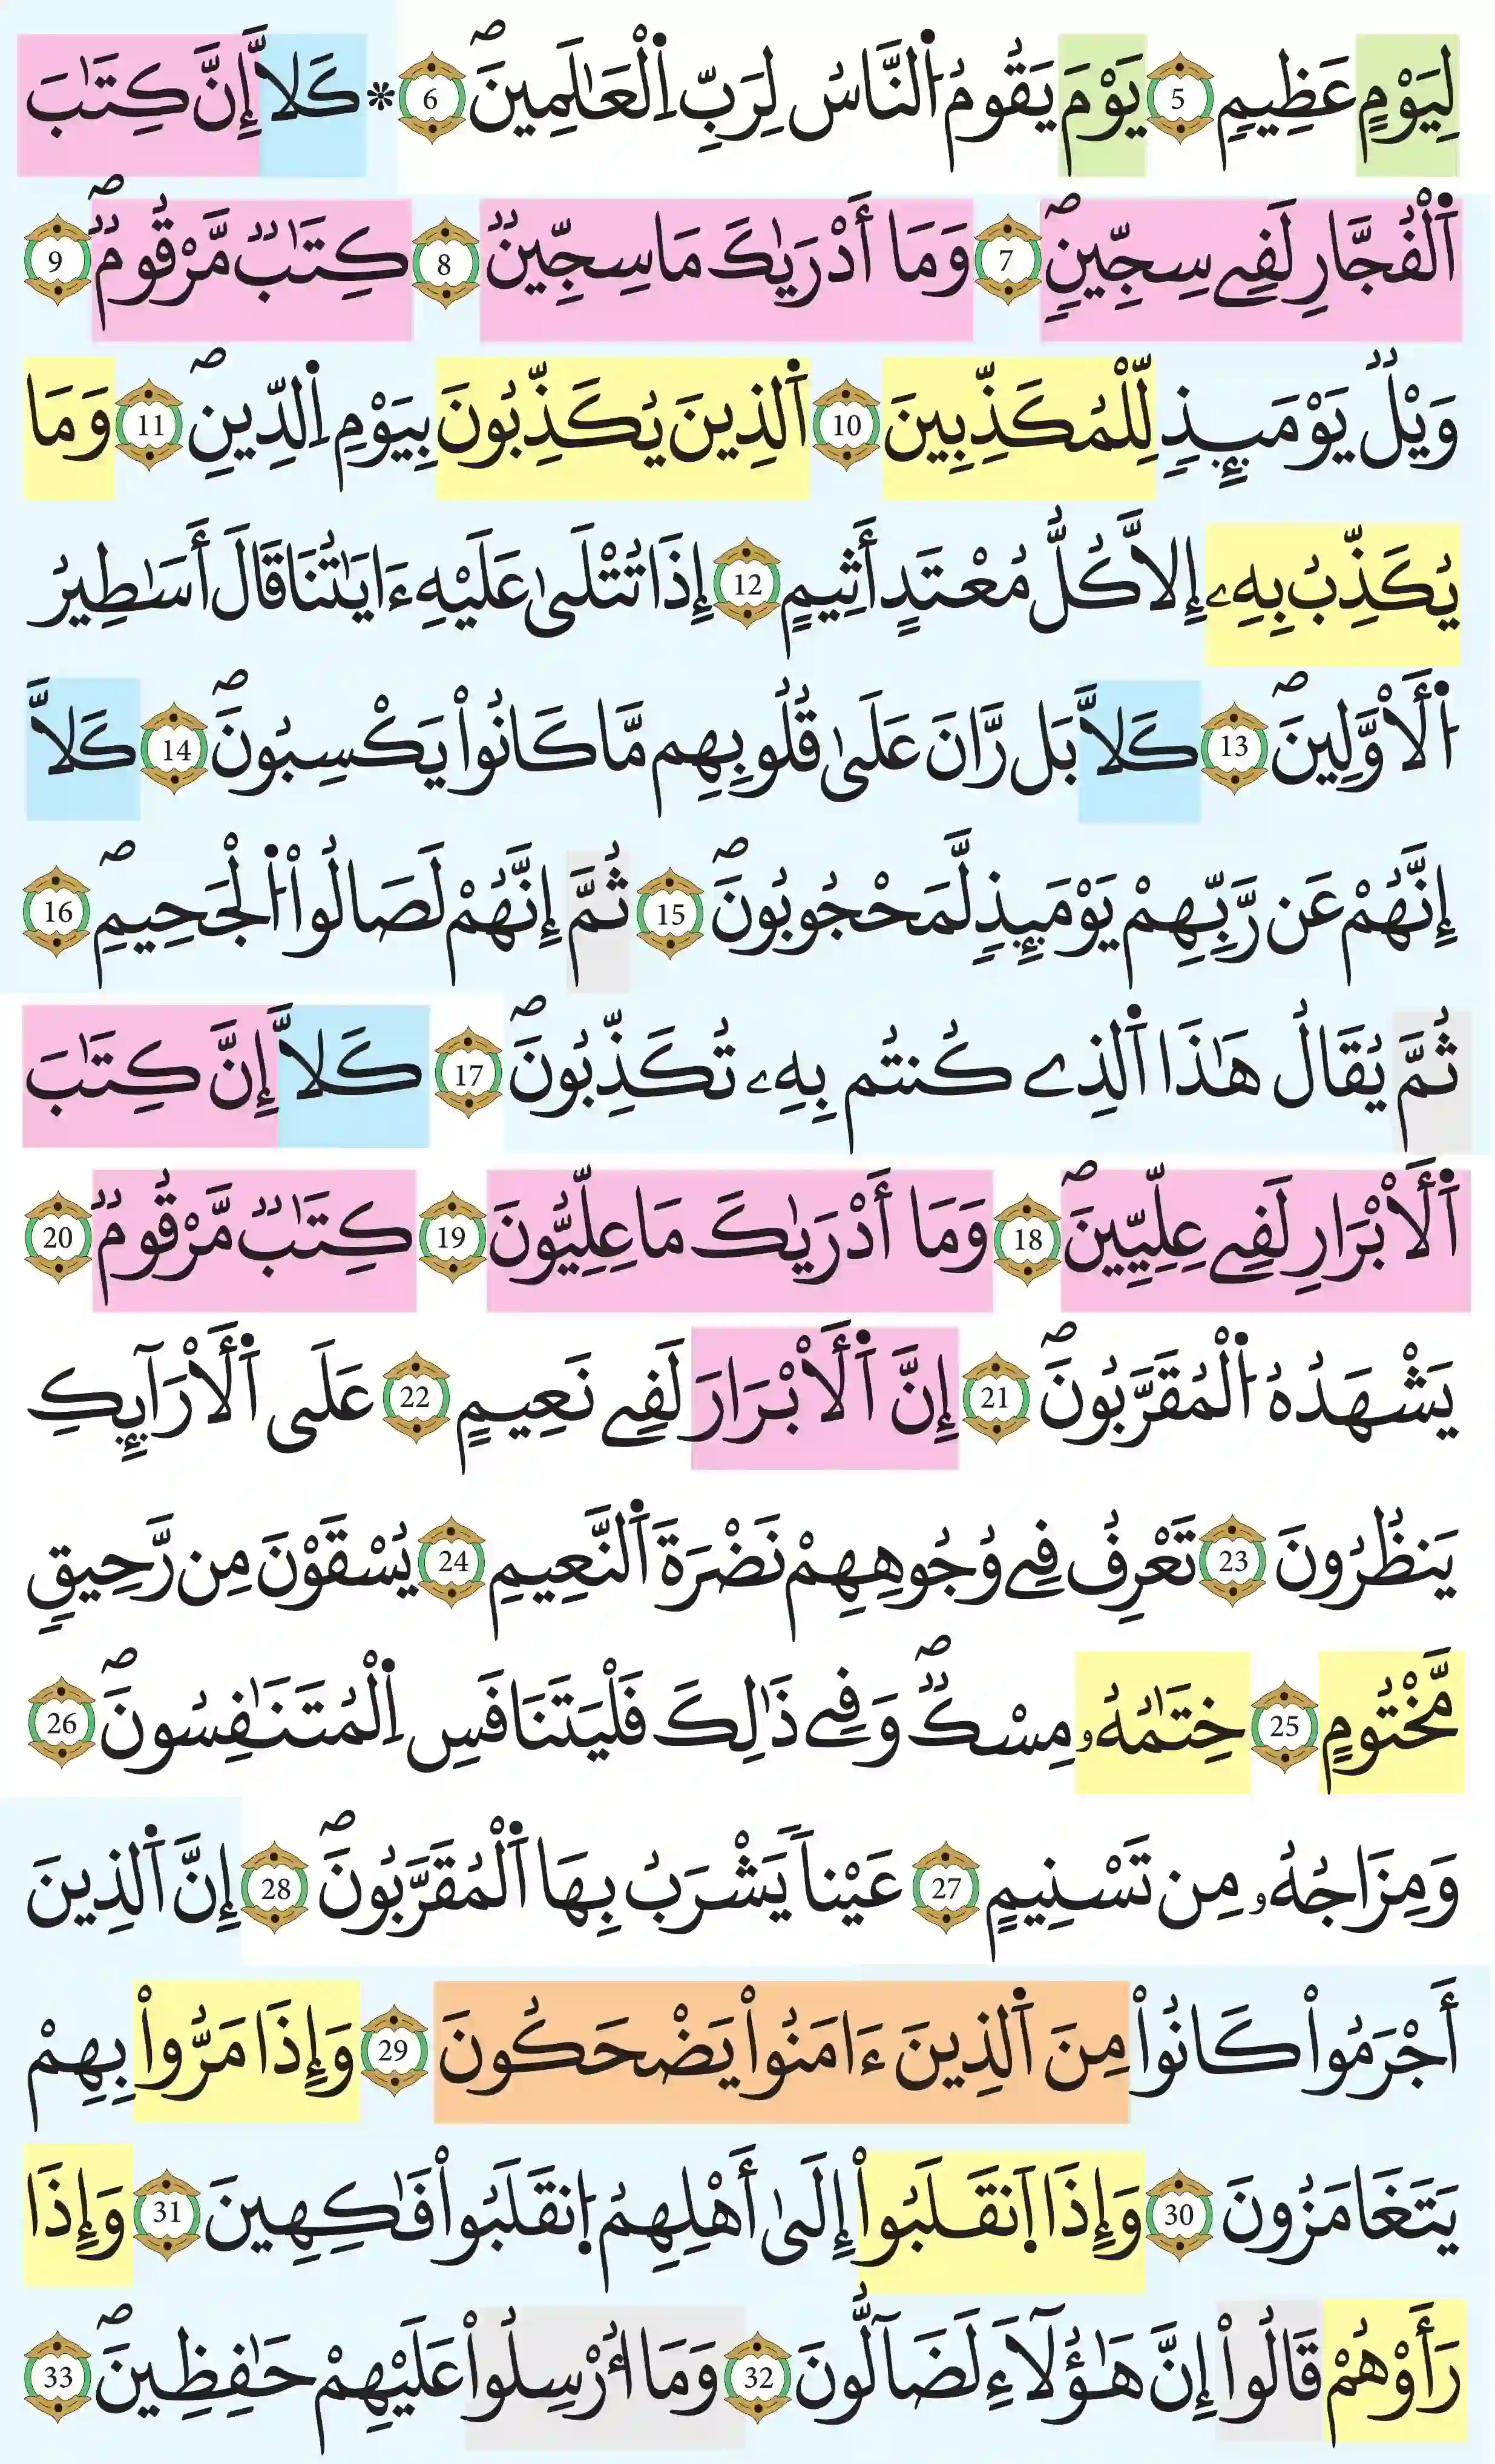 لِيَوْمٍ عَظِيمٍ 5 يَوْمَ يَقُومُ اُ۬لنَّاسُ لِرَبِّ اِ۬لْعَٰلَمِينَۖ 6 * كَلَّآ إِنَّ كِتَٰبَ
اَ۬لْفُجَّارِ لَفِے سِجِّينٖۖ 7 وَمَآ أَدْر۪يٰكَ مَا سِجِّينٞۖ 8 كِتَٰبٞ مَّرْقُومٞۖ 9
وَيْلٞ يَوْمَئِذٖ لِّلْمُكَذِّبِينَ 10 اَ۬لذِينَ يُكَذِّبُونَ بِيَوْمِ اِ۬لدِّينِۖ 11 وَمَا
يُكَذِّبُ بِهِۦٓ إِلَّا كُلُّ مُعْتَدٍ أَثِيمٍ 12 إِذَا تُتْلَىٰ عَلَيْهِ ءَايَٰتُنَا قَالَ أَسَٰطِيرُ
اُ۬لَاوَّلِينَۖ 13 كَلَّا بَل رَّانَ عَلَىٰ قُلُوبِهِم مَّا كَانُواْ يَكْسِبُونَۖ 14 كَلَّآ
إِنَّهُمْ عَن رَّبِّهِمْ يَوْمَئِذٖ لَّمَحْجُوبُونَۖ 15 ثُمَّ إِنَّهُمْ لَصَالُواْ اُ۬لْجَحِيمِۖ 16
ثُمَّ يُقَالُ هَٰذَا اَ۬لذِے كُنتُم بِهِۦ تُكَذِّبُونَۖ 17 كَلَّآ إِنَّ كِتَٰبَ
اَ۬لَابْرَارِ لَفِے عِلِّيِّينَۖ 18 وَمَآ أَدْر۪يٰكَ مَا عِلِّيُّونَ 19 كِتَٰبٞ مَّرْقُومٞ 20
يَشْهَدُهُ اُ۬لْمُقَرَّبُونَۖ 21 إِنَّ اَ۬لَابْرَارَ لَفِے نَعِيمٍ 22 عَلَى اَ۬لَارَآئِكِ
يَنظُرُونَ 23 تَعْرِفُ فِے وُجُوهِهِمْ نَضْرَةَ اَ۬لنَّعِيمِ 24 يُسْقَوْنَ مِن رَّحِيقٖ
مَّخْتُومٍ 25 خِتَٰمُهُۥ مِسْكٞۖ وَفِے ذَٰلِكَ فَلْيَتَنَافَسِ اِ۬لْمُتَنَٰفِسُونَۖ 26
وَمِزَاجُهُۥ مِن تَسْنِيمٍ 27 عَيْناٗ يَشْرَبُ بِهَا اَ۬لْمُقَرَّبُونَۖ 28 إِنَّ اَ۬لذِينَ
أَجْرَمُواْ كَانُواْ مِنَ اَ۬لذِينَ ءَامَنُواْ يَضْحَكُونَ 29 وَإِذَا مَرُّواْ بِهِمْ
يَتَغَامَزُونَ 30 وَإِذَا اَ۪نقَلَبُواْ إِلَىٰٓ أَهْلِهِمُ اُ۪نقَلَبُواْ فَٰكِهِينَ 31 وَإِذَا
رَأَوْهُمْ قَالُوٓاْ إِنَّ هَٰٓؤُلَآءِ لَضَآلُّونَ 32 وَمَآ أُرْسِلُواْ عَلَيْهِمْ حَٰفِظِينَۖ 33